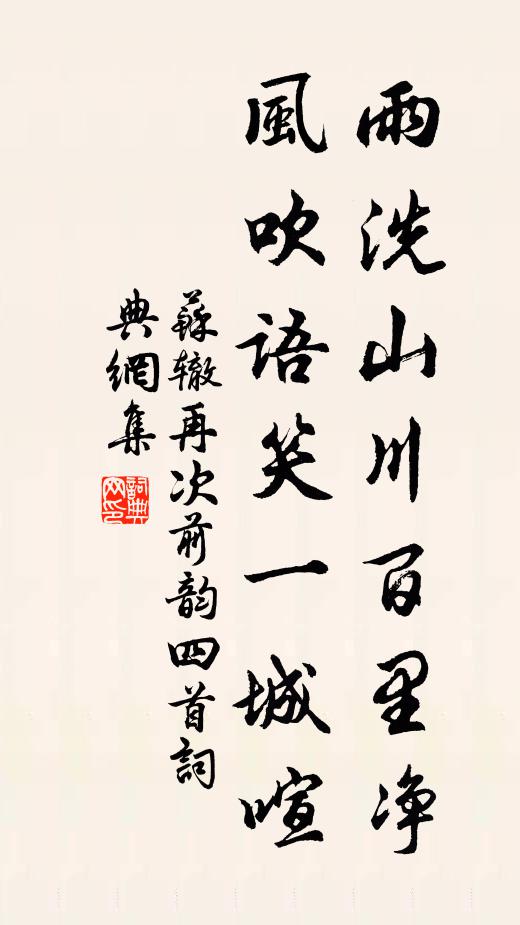 雨洗山川百里净
風吹語笑一城喧
蘇辙再次前韵四首詞
典網集
詞典网印